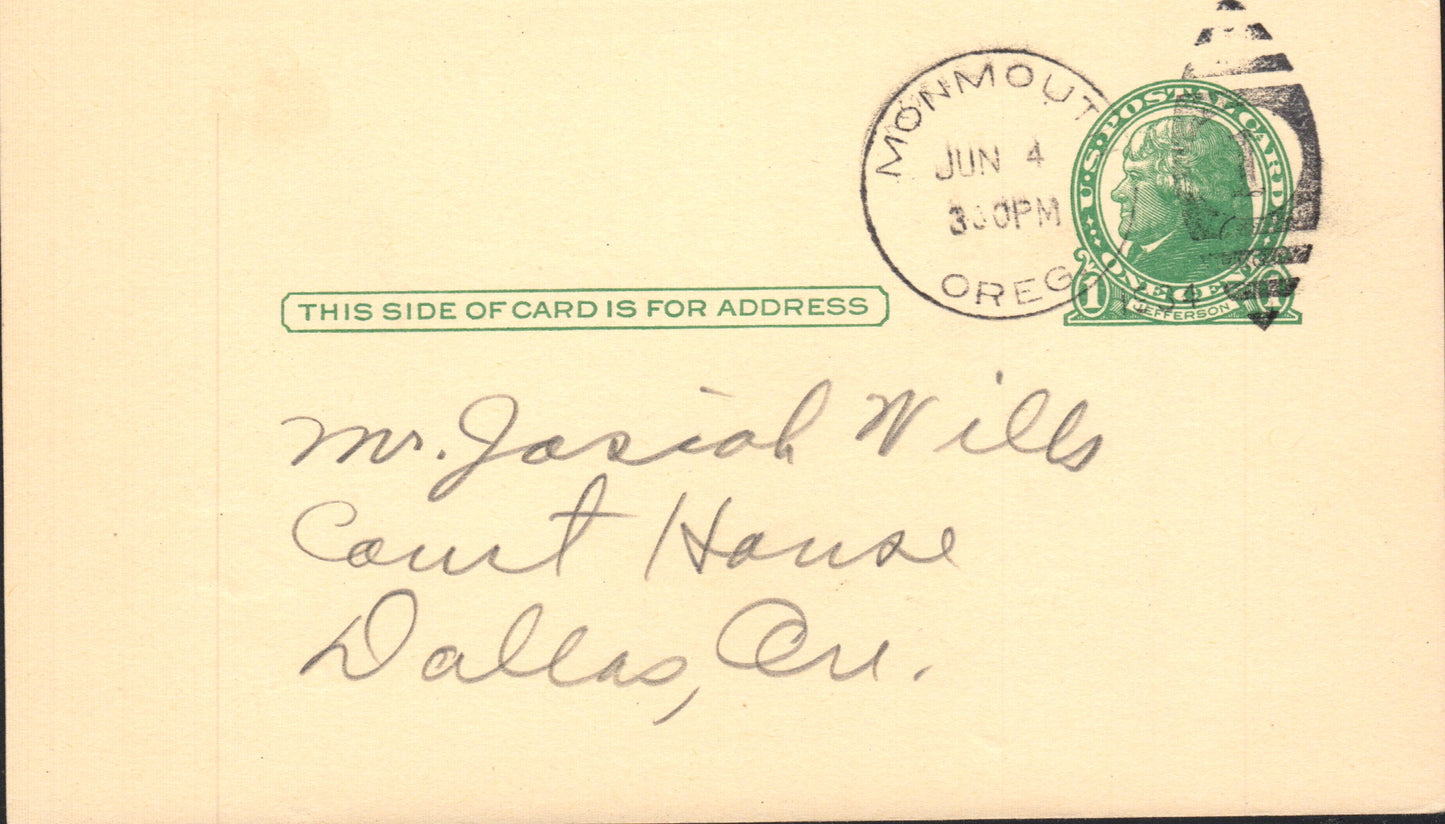 MONMOUT
JUN 4
3 30 PM
OREG
34
U.S. POSTAL CARD
1 ONE CENT 1
JEFFERSON
THIS SIDE OF CARD IS FOR ADDRESS
Mr. Josiah Wills
Court House
Dallas, Ore.